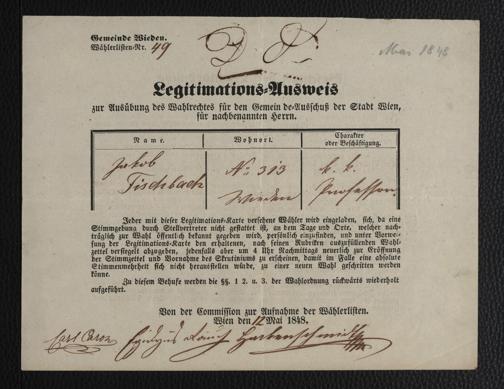 Gemeinde Wieden.
Wählerlisten-Nr. 49
Mai 1848
Legitimations-Ausweis
zur Ausübung des Wahlrechtes für den Gemeinde-Ausschuß der Stadt Wien,
für nachbenannten Herrn.
Name. Wohnort. Charakter oder Beschäftigung.
Jakob No. 313 k. k.
Fischbach Wieden Professor.
Jeder mit dieser Legitimations-Karte versehene Wähler wird eingeladen, sich, da eine
Stimmgebung durch Stellvertreter nicht gestattet ist, an dem Tage und Orte, welcher nach-
träglich zur Wahl öffentlich bekannt gegeben wird, persönlich einzufinden, und unter Vorwei-
sung der Legitimations-Karte den erhaltenen, nach seinen Rubriken auszufüllenden Wahl-
zettel versiegelt abzugeben, jedenfalls aber um 4 Uhr Nachmittags neuerlich zur Eröffnung
der Stimmzettel und Vornahme des Skrutiniums zu erscheinen, damit im Falle eine absolute
Stimmenmehrheit sich nicht herausstellen würde, zu einer neuen Wahl geschritten werden
könne.
Zu diesem Behufe werden die §§. 1 2. u. 3. der Wahlordnung rückwärts wiederholt
aufgeführt.
Von der Commission zur Aufnahme der Wählerlisten.
Wien den 12 Mai 1848.